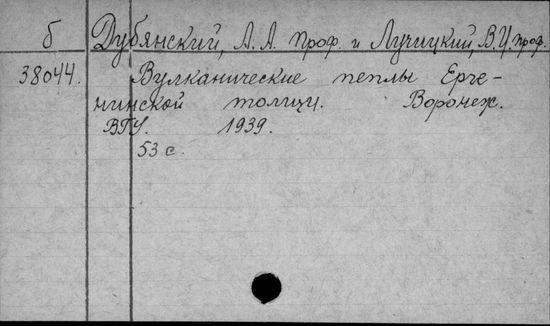 б Дубянский, А. А. проф. и Лучицкий, В. И. проф.
38044. Вулканические пеплы Ерге-
нинской толщи. Воронеж.
ВГУ. 1939.
53 с.